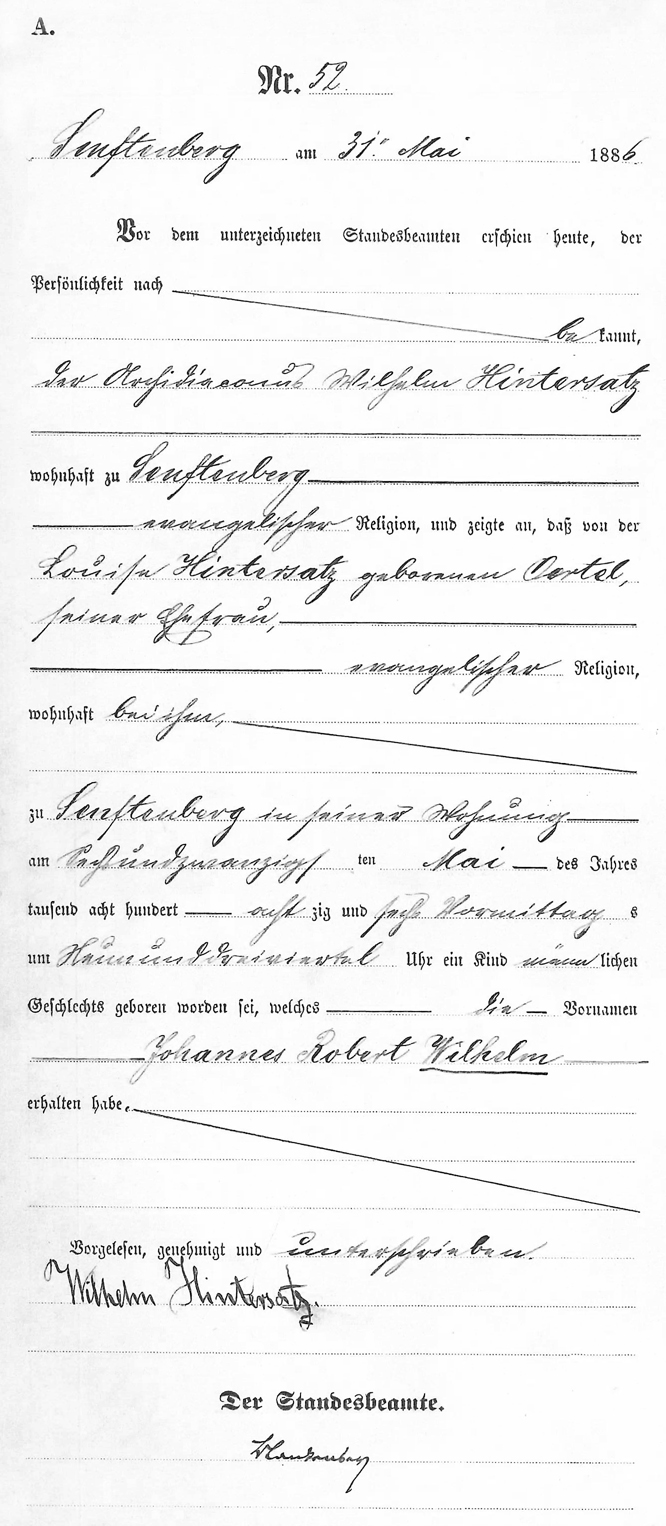 A.
Nr. 52.
Senftenberg am 31. Mai 1886
Vor dem unterzeichneten Standesbeamten erschien heute, der
Persönlichkeit nach
be kannt,
der Archidiaconus Wilhelm Hintersatz
wohnhaft zu Senftenberg
evangelischer Religion, und zeigte an, daß von der
Louise Hintersatz geborenen Oertel,
seiner Ehefrau,
evangelischer Religion,
wohnhaft bei ihm,
zu Senftenberg in seiner Wohnung
am Sechsundzwanzigs ten Mai des Jahres
tausend acht hundert acht zig und sechs Vormittag s
um Neununddreiviertel Uhr ein Kind männ lichen
Geschlechts geboren worden sei, welches die Vornamen
Johannes Robert Wilhelm
erhalten habe.
Vorgelesen, genehmigt und unterschrieben.
Wilhelm Hintersatz.
Der Standesbeamte.